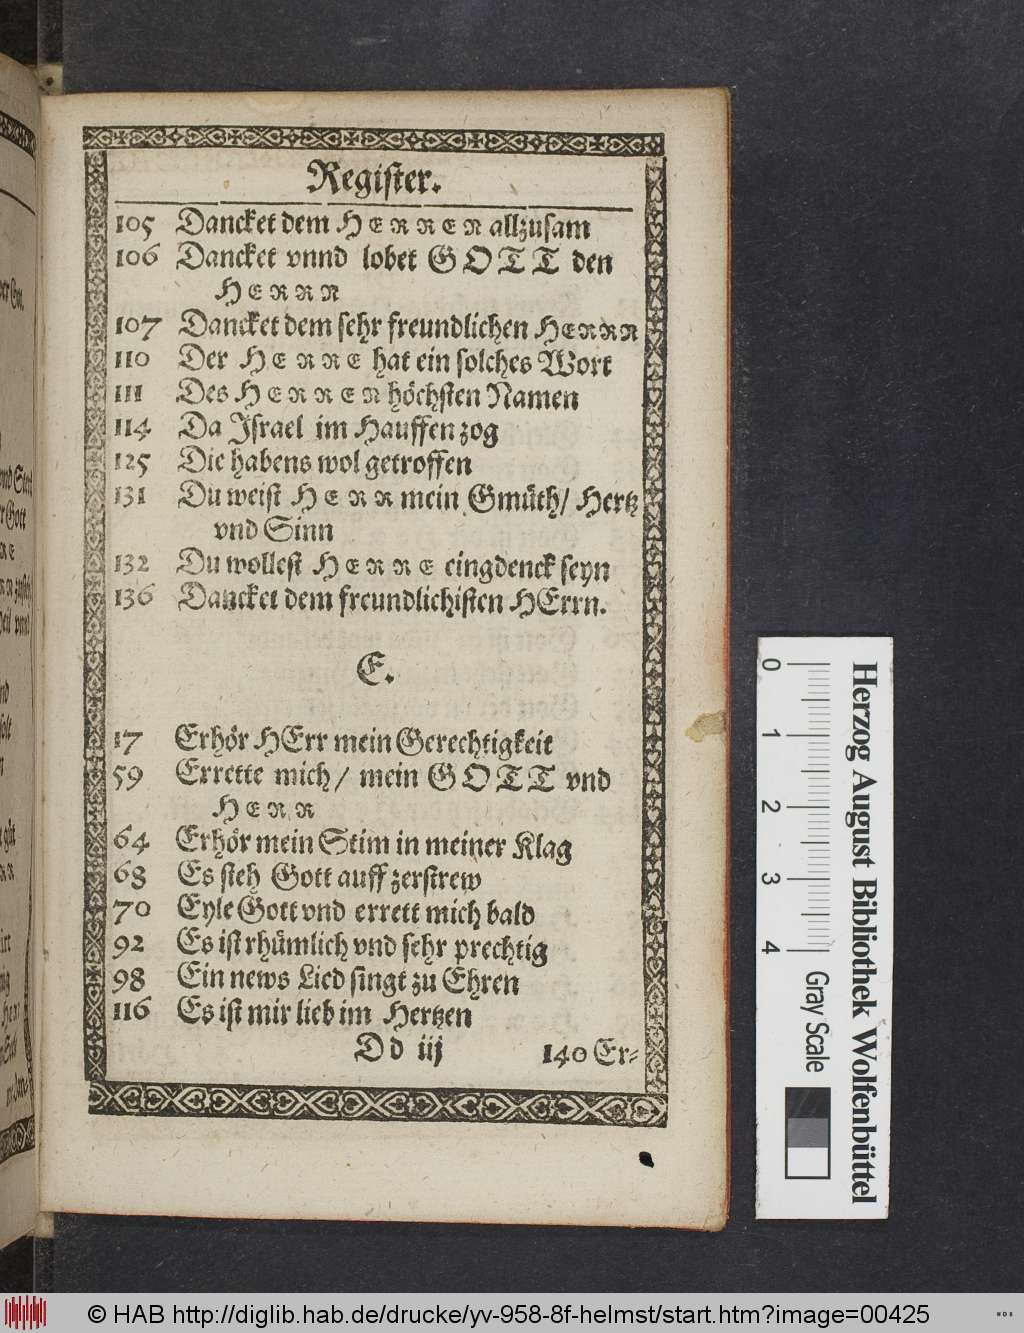 Register.
105 Dancket dem HERREN allzusam
106 Dancket vnnd lobet GOTT den
HERRN
107 Dancket dem sehr freundlichen HERRN
110 Der HERRE hat ein solches Wort
111 Des HERREN höchsten Namen
114 Da Israel im Hauffen zog
125 Die habens wol getroffen
131 Du weist HERR mein Gmüth/ Hertz
vnd Sinn
132 Du wollest HERRE eingdenck seyn
136 Dancket dem freundlichisten HErrn.
E.
17 Erhör HErr mein Gerechtigkeit
59 Errette mich/ mein GOTT vnd
HERR
64 Erhör mein Stim in meiner Klag
68 Es steh Gott auff zerstrew
70 Eyle Gott vnd errett mich bald
92 Es ist rhümlich vnd sehr prechtig
98 Ein news Lied singt zu Ehren
116 Es ist mir lieb im Hertzen
Dd iij 140 Er-
0 1 2 3 4
Gray Scale
Herzog August Bibliothek Wolfenbüttel
© HAB http://diglib.hab.de/drucke/yv-958-8f-helmst/start.htm?image=00425